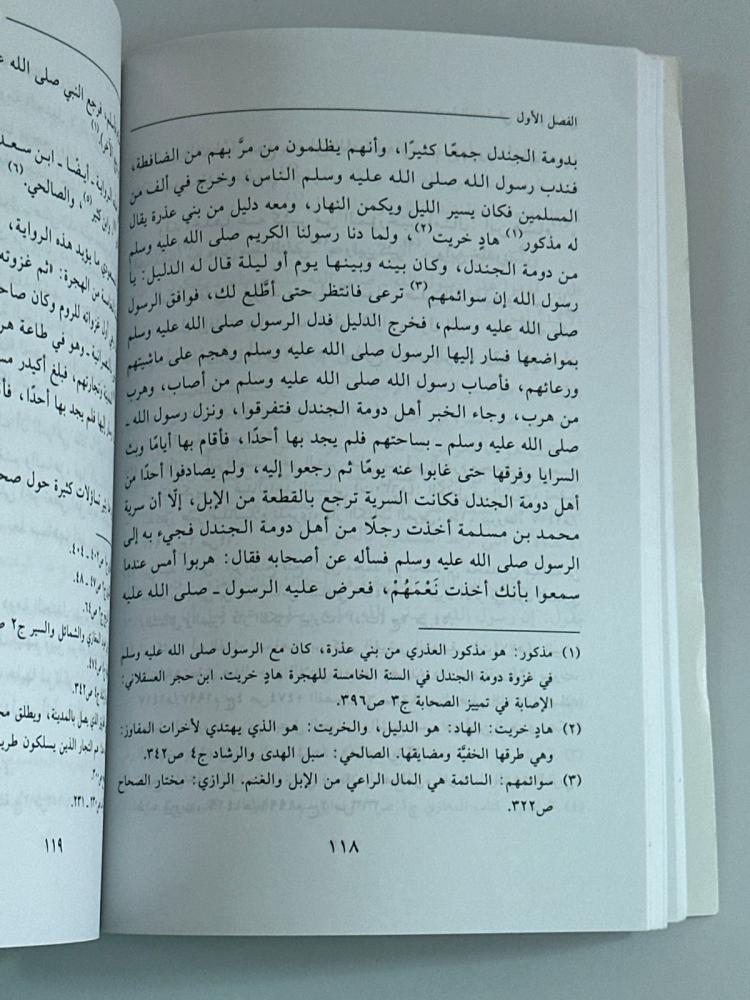 الفصل الأول
بدومة الجندل جمعًا كثيرًا، وأنهم يظلمون من مرَّ بهم من الضافطة،
فندب رسول الله صلى الله عليه وسلم الناس، وخرج في ألف من
المسلمين فكان يسير الليل ويكمن النهار، ومعه دليل من بني عذرة يقال
له مذكور(١) هادٍ خريت(٢)، ولما دنا رسولنا الكريم صلى الله عليه وسلم
من دومة الجندل، وكان بينه وبينها يوم أو ليلة قال له الدليل: يا
رسول الله إن سوائمهم(٣) ترعى فانتظر حتى أطَّلع لك، فوافق الرسول
صلى الله عليه وسلم، فخرج الدليل فدل الرسول صلى الله عليه وسلم
بمواضعها فسار إليها الرسول صلى الله عليه وسلم وهجم على ماشيتهم
ورعائهم، فأصاب رسول الله صلى الله عليه وسلم من أصاب، وهرب
من هرب، وجاء الخبر أهل دومة الجندل فتفرقوا، ونزل رسول الله ـ
صلى الله عليه وسلم ـ بساحتهم فلم يجد بها أحدًا، فأقام بها أيامًا وبث
السرايا وفرقها حتى غابوا عنه يومًا ثم رجعوا إليه، ولم يصادفوا أحدًا من
أهل دومة الجندل فكانت السرية ترجع بالقطعة من الإبل، إلّا أن سرية
محمد بن مسلمة أخذت رجلًا من أهل دومة الجندل فجيء به إلى
الرسول صلى الله عليه وسلم فسأله عن أصحابه فقال: هربوا أمس عندما
سمعوا بأنك أخذت نَعْمَهُمْ، فعرض عليه الرسول ـ صلى الله عليه
(١) مذكور: هو مذكور العذري من بني عذرة، كان مع الرسول صلى الله عليه وسلم
في غزوة دومة الجندل في السنة الخامسة للهجرة هادٍ خريت. ابن حجر العسقلاني:
الإصابة في تمييز الصحابة ج٣ ص٣٩٦.
(٢) هادٍ خريت: الهاد: هو الدليل، والخريت: هو الذي يهتدي لأخرات المفاوز:
وهي طرقها الخفيَّة ومضايقها. الصالحي: سبل الهدى والرشاد ج٤ ص٣٤٢.
(٣) سوائمهم: السائمة هي المال الراعي من الإبل والغنم. الرازي: مختار الصحاح
ص٣٢٢.
١١٨
فرجع النبي صلى الله
الرواية ـ أيضًا ـ ابن سعد
ابن كثير(٥)، والصالحي.(٦)
ما يؤيد هذه الرواية،
من الهجرة: «ثم غزوته
غزواته للروم وكان صاحب
ـ وهو في طاعة هر
وتجارتهم، فبلغ أكيدر
إليها فلم يجد بها أحدًا،
تساؤلات كثيرة حول
المغازي والشمائل والسير ج٢
ص٣٤٢.
بالمدينة، ويطلق
التجار الذين يسلكون
١١٩